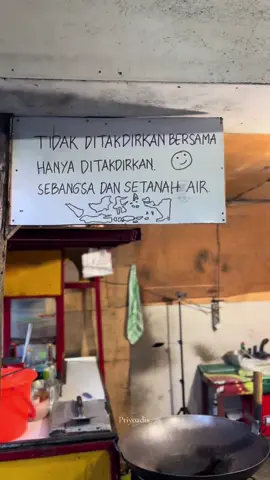 TIDAK DITAKDIRKAN BERSAMA
HANYA DITAKDIRKAN.
SEBANGSA DAN SETANAH AIR
Priyudie